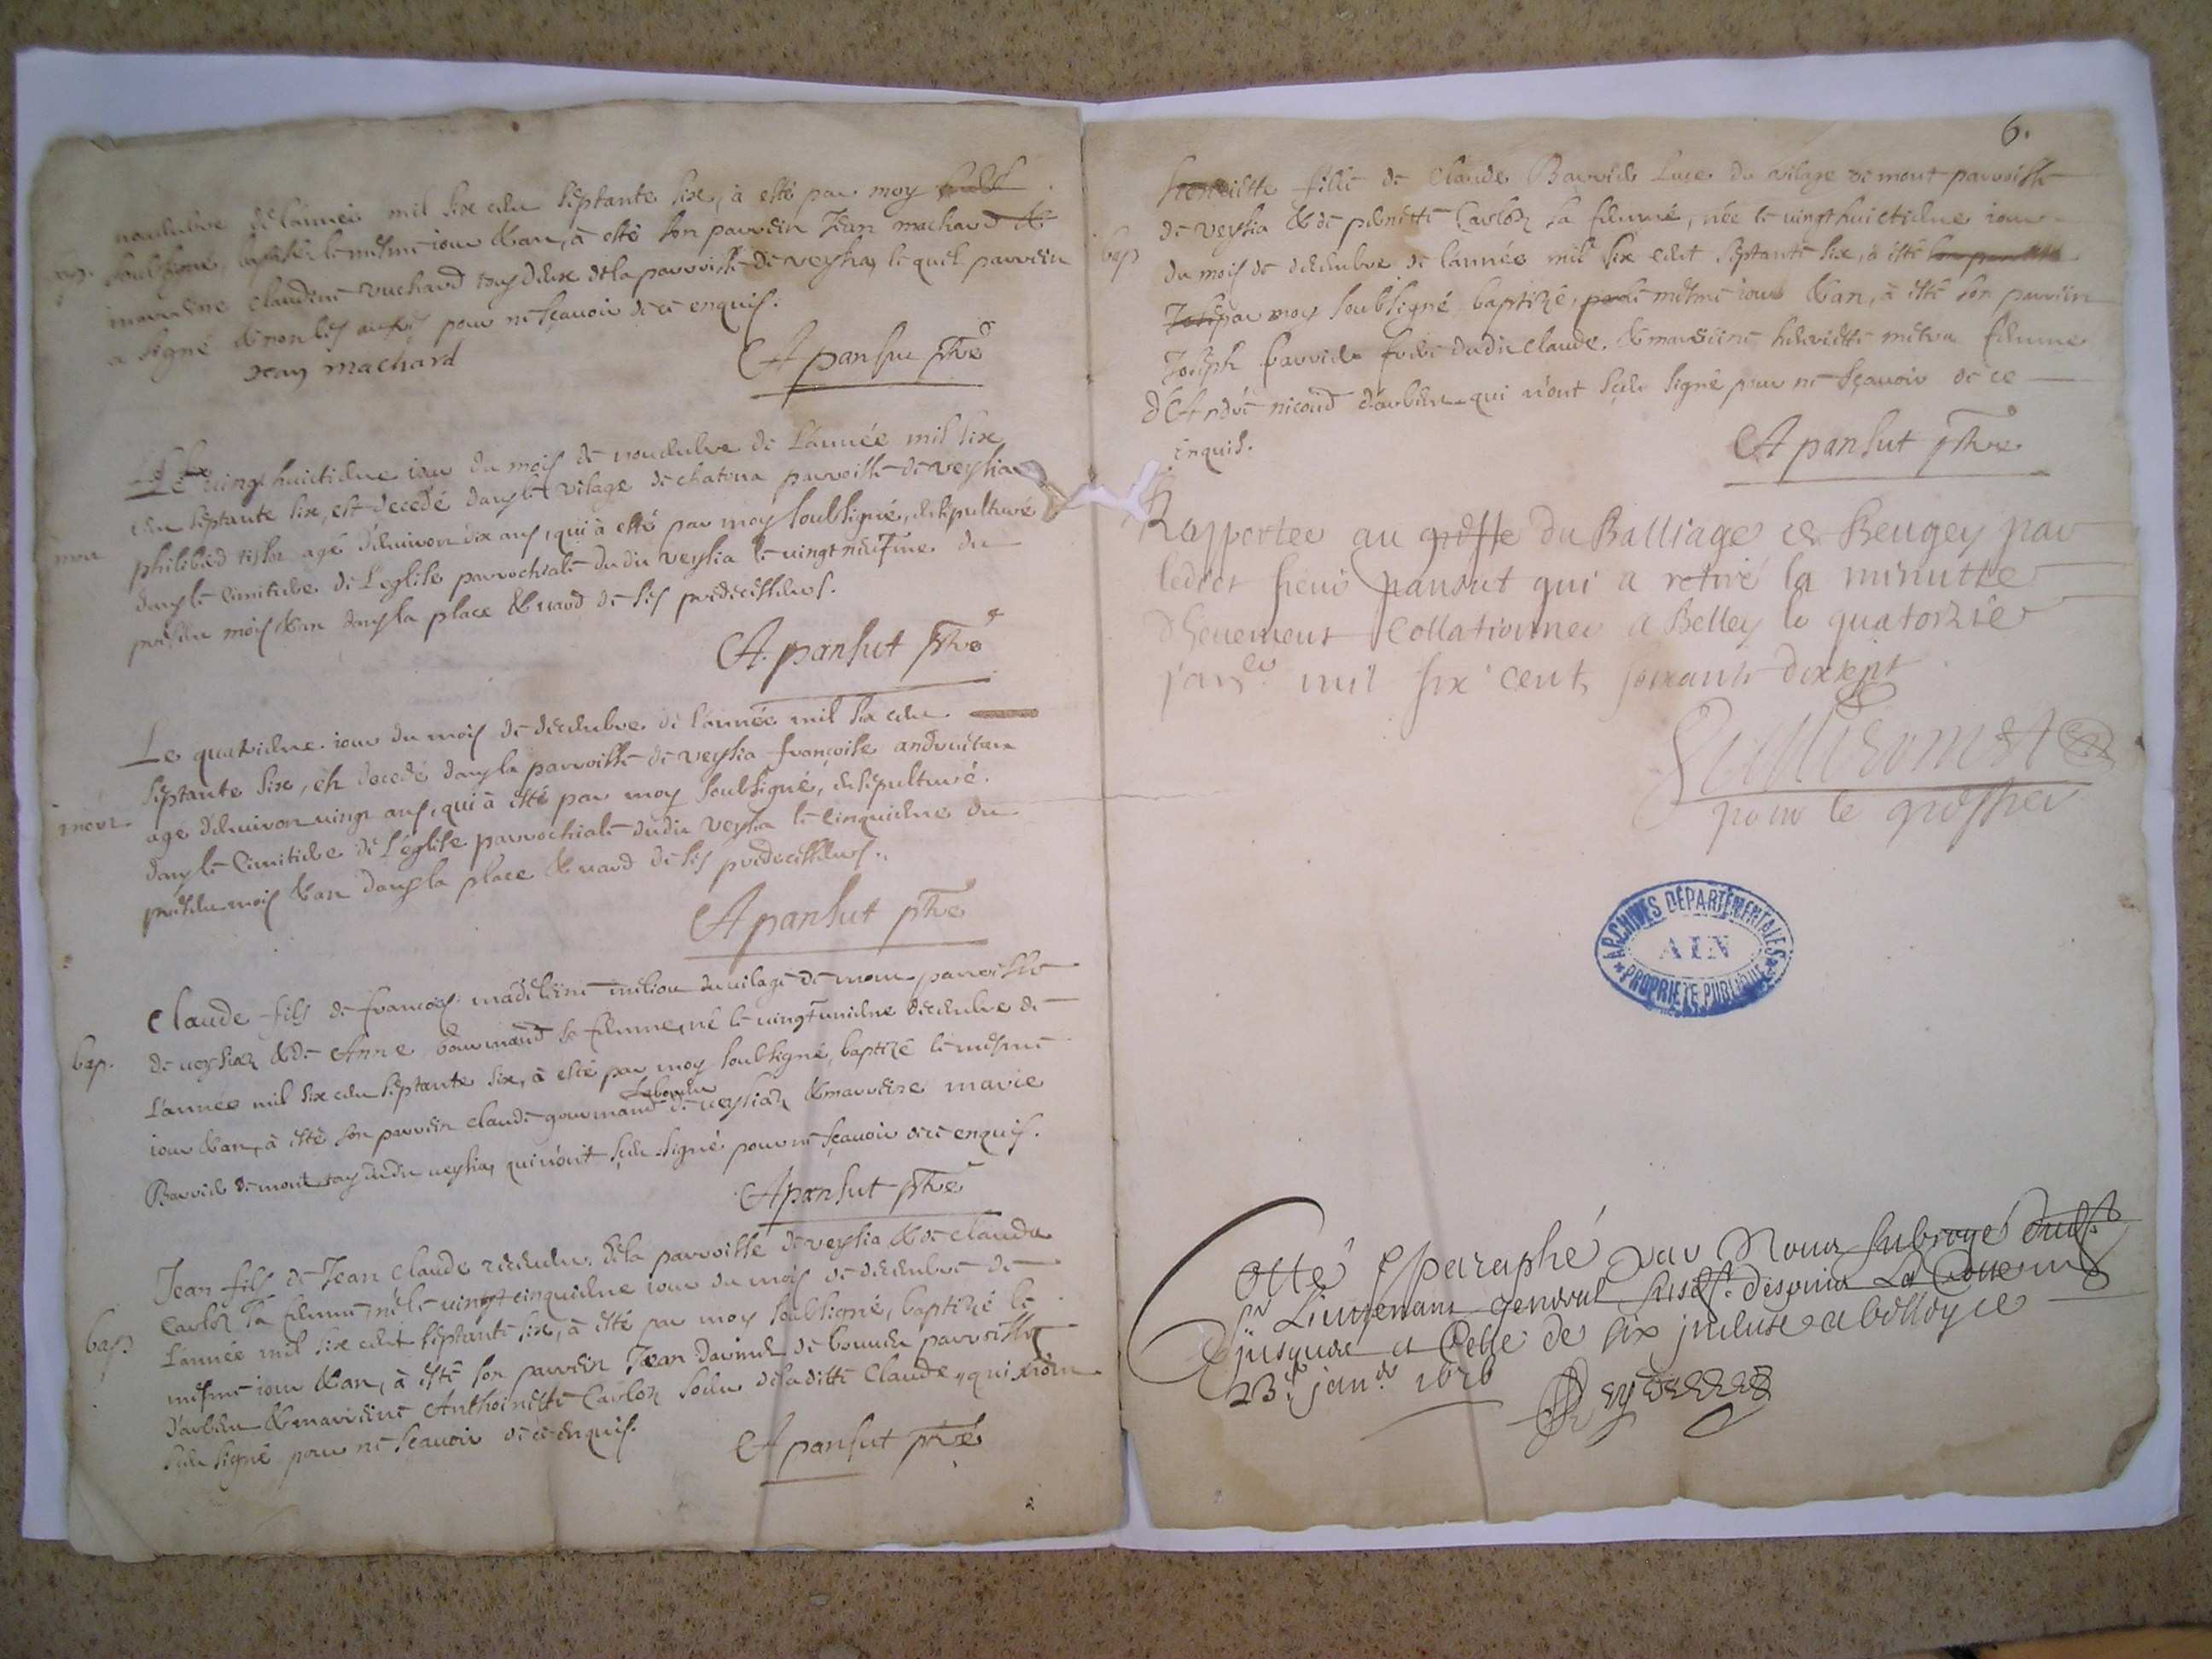 novembre de l'année mil six cen septante six, à esté par moy
bap. soubsigné, baptizé le mesme iour & an, à esté son parrein Jean machard &
marreine claudine vuchard tous deux de la parroisse de veysia, le quel parrein
a signé & non les autres pour ne sçavoir de ce enquis.
Jean machard
A pansut ptre
Le vingt huictieme iour du mois de novembre de L'année mil six
cen septante six, est decedé dans le vilage de chatona parroisse de veysia
mor philibed agé d'environ dix ans, qui à esté par moy soubsigné, ensepulturé
dans le cimitiere de L'eglise parrochiale dudit veysia le vingt neufme du
presen mois & an dans la place & vard de ses predecesseurs.
A. pansut ptre
Le quatrieme iour du mois de decembre de l'année mil six cen
septante six, est decedé dans la parroisse de veysia françoise
mort agé d'environ vingt ans, qui à esté par moy soubsigné, ensepulturé
dans le cimitiere de L'église parrochiale dudit veysia le cinquieme du
presen mois & an dans la place & vard de ses predecesseurs.
A pansut ptre
Claude fils de françois madeleine du vilage de mont parroisse
bap. de veysiaz & de Anne gourmand sa femme, né le vingt unieme decembre de
L'année mil six cen septante six, à esté par moy soubsigné, baptizé le mesme
iour & an, à esté son parrein claude gourmand de veysiaz & marreine marie
Barril de mont tous dudit veysia, qui n'ont scen signé pour ne sçavoir de ce enquis.
A pansut ptre
Jean fils de Jean claude de la parroisse de veysia & de clauda
Carloz sa femme, né le vingt cinquieme iour du mois de decembre de
bap. L'année mil six cent septante six, à esté par moy soubsigné, baptizé le
mesme iour & an, à esté son parrein Jean de parroisse
d'arben & marreine Anthoinette Carloz soeur de laditte Claude, qui n'on
scen signé pour ne sçavoir de ce enquis.
A pansut ptre
6.
henriette fille de Claude Barril Luce du vilage de mont parroisse
de veysia & de pernette Carloz sa femme, née le vingt huictieme iour
bap du mois de decembre de l'année mil six cent septante six, à esté
par moy soubsigné baptizée, le mesme iour & an, à esté son parrein
Joseph barril frere dudit claude & marreine henriette femme
d'André nicoud d'arben qui n'ont scen signé pour ne sçavoir de ce
enquis.
A pansut ptre
Rapportée au greffe du Balliage de Beugey par
ledict sieur pansut qui a retiré la minutte
dheuement Collationnée a Belley le quatorzie
janer mil six cent soixante dixsept
Guillermet
pour le greffier
ARCHIVES DÉPARTEMENTALES
AIN
PROPRIÉTÉ PUBLIQUE
Cotté & paraphé par Nous subrogé
pr Lieutenant general
jusques a Celle de six incluse a belley ce
23e janer 1676